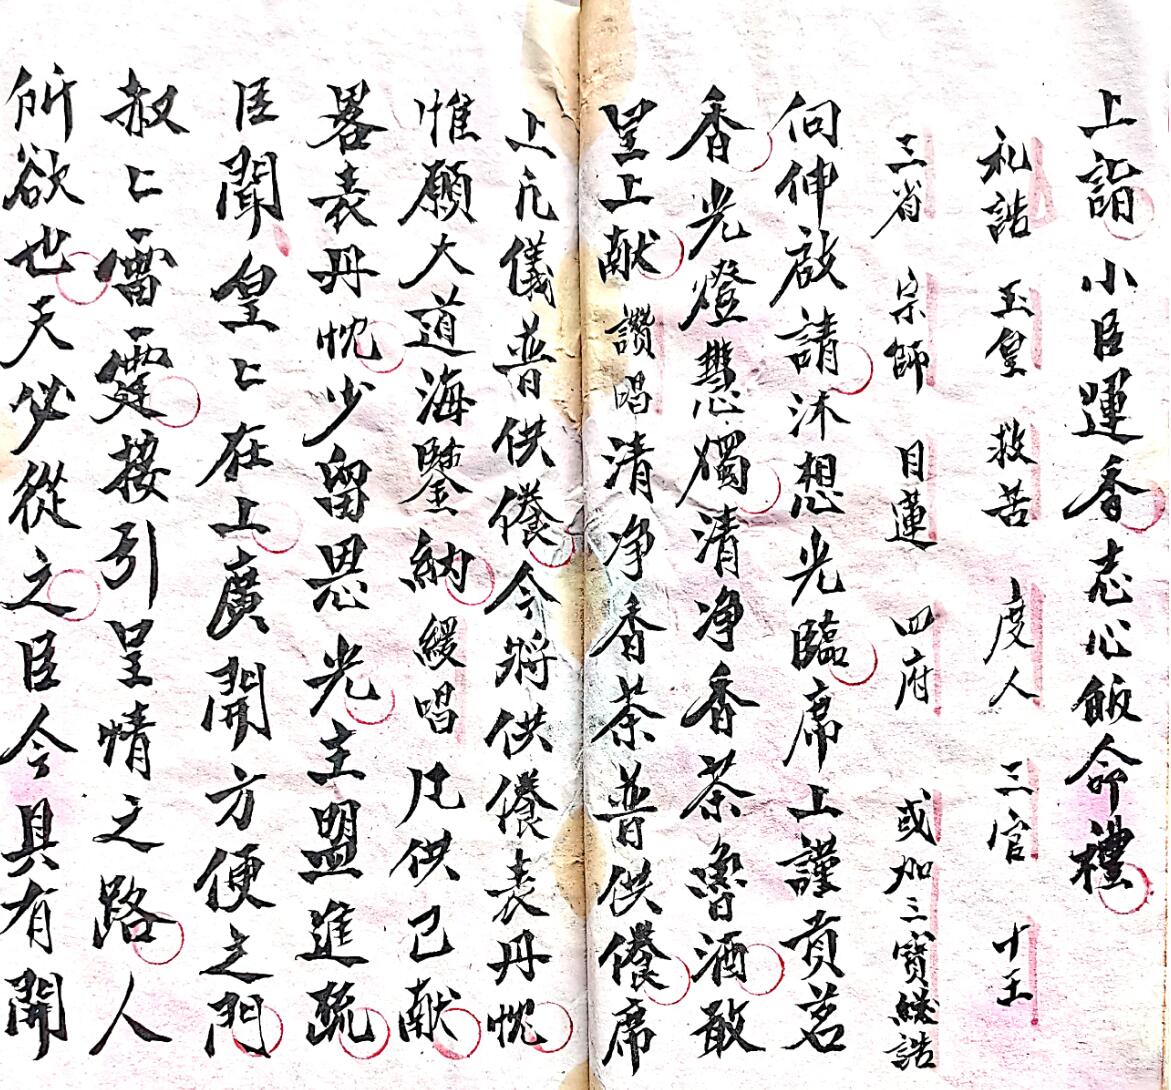 上詣小臣運香志心皈命禮
礼誥 玉皇 救苦 度人 三官 十王
三省 宗師 目蓮 四府 或加三寶総誥
向伸啟請沐想光臨席上謹貢茗
香光燈慧燭清净香茶魯酒敢
呈上献讚唱清净香茶普供養席
上凡儀普供養今將供養表丹忱
惟願大道海鑒納緩唱凡供已献
畧表丹忱少留恩光主盟進疏
臣聞皇〻在上廣開方便之門
赦〻雷霆接引呈情之路人
所欲也天必從之臣今具有開